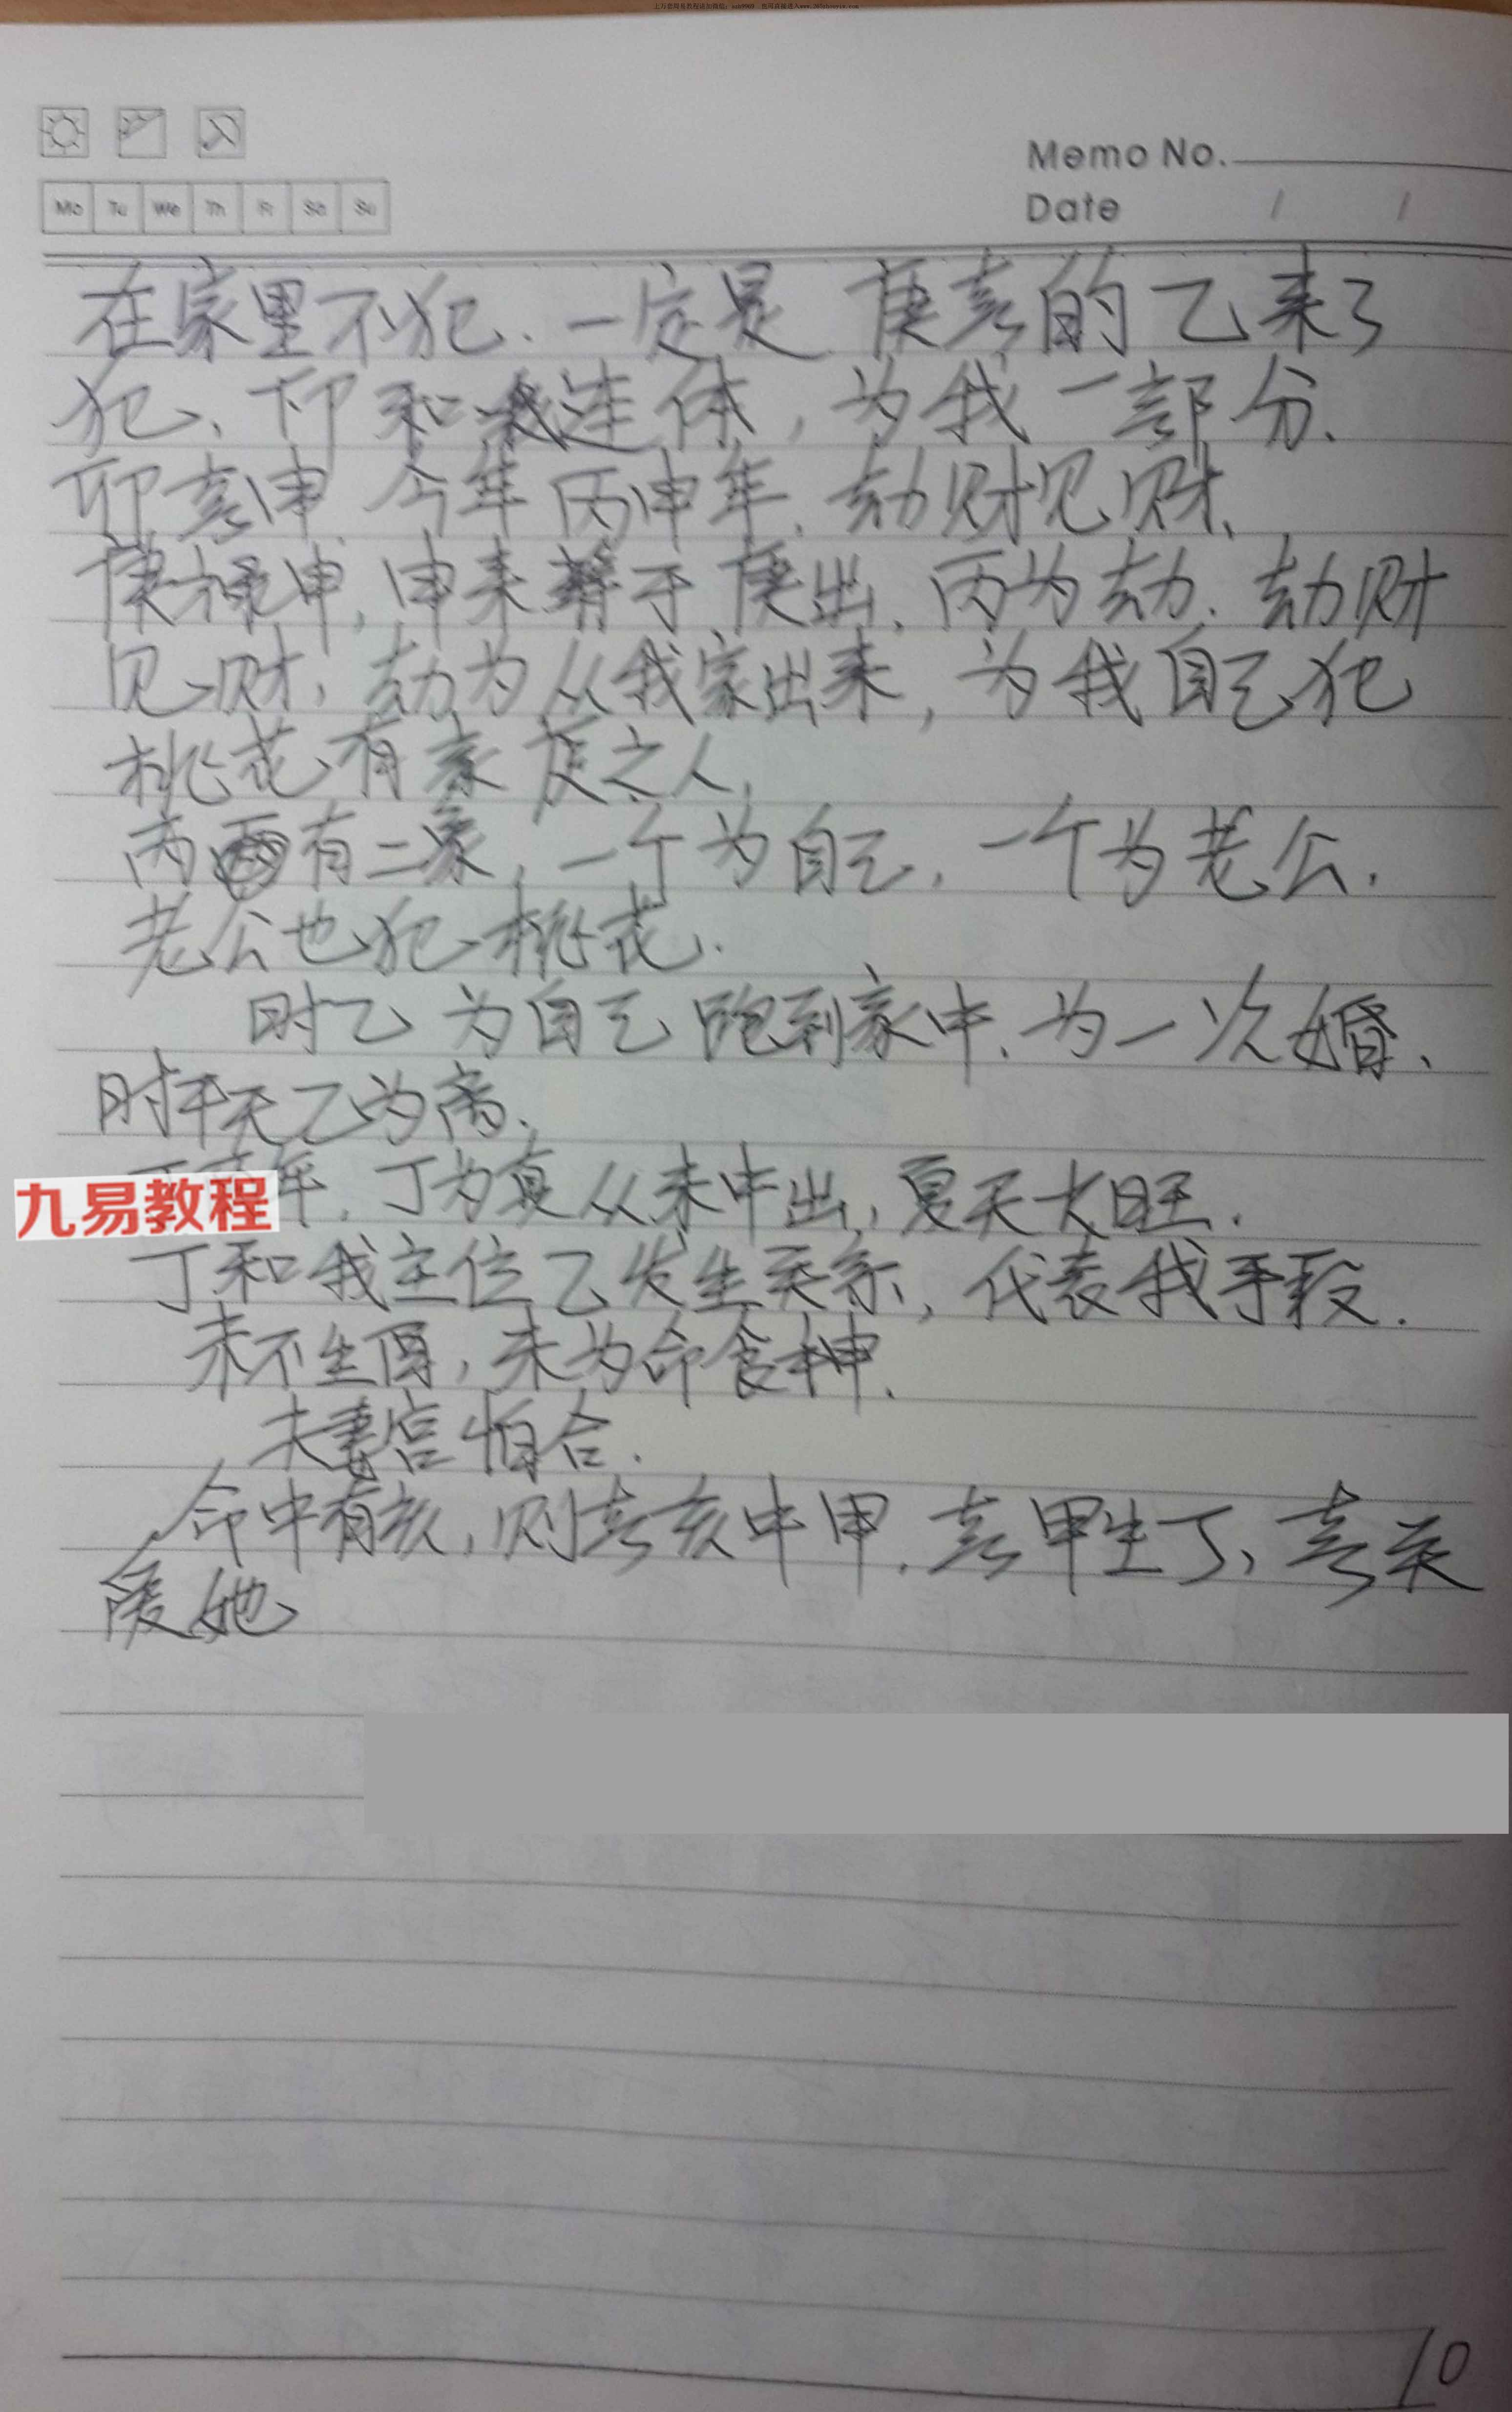 Memo No.
Mo Tu We Th Fr Sa Su
Date / /
在家里不犯. 一定是 庚喜的乙来了
犯、卯和我连体, 为我一部分.
卯喜申, 今年丙申年. 劫财见财.
庚禄申, 申来等于庚出. 丙为劫. 劫财
见财, 劫为从我家出来, 为我自己犯
桃花有家庭之人.
丙有二象, 一个为自己, 一个为老公.
老公也犯桃花.
时乙为自己跑到家中. 为一次婚.
时干天乙为离.
年. 丁为真从未中出, 夏天火旺.
九易教程
丁和我主位乙发生关系, 代表我手段.
未不生酉, 未为命食神.
夫妻宫怕合.
命中有亥, 则喜亥中甲. 喜甲生丁, 喜关
爱她
10